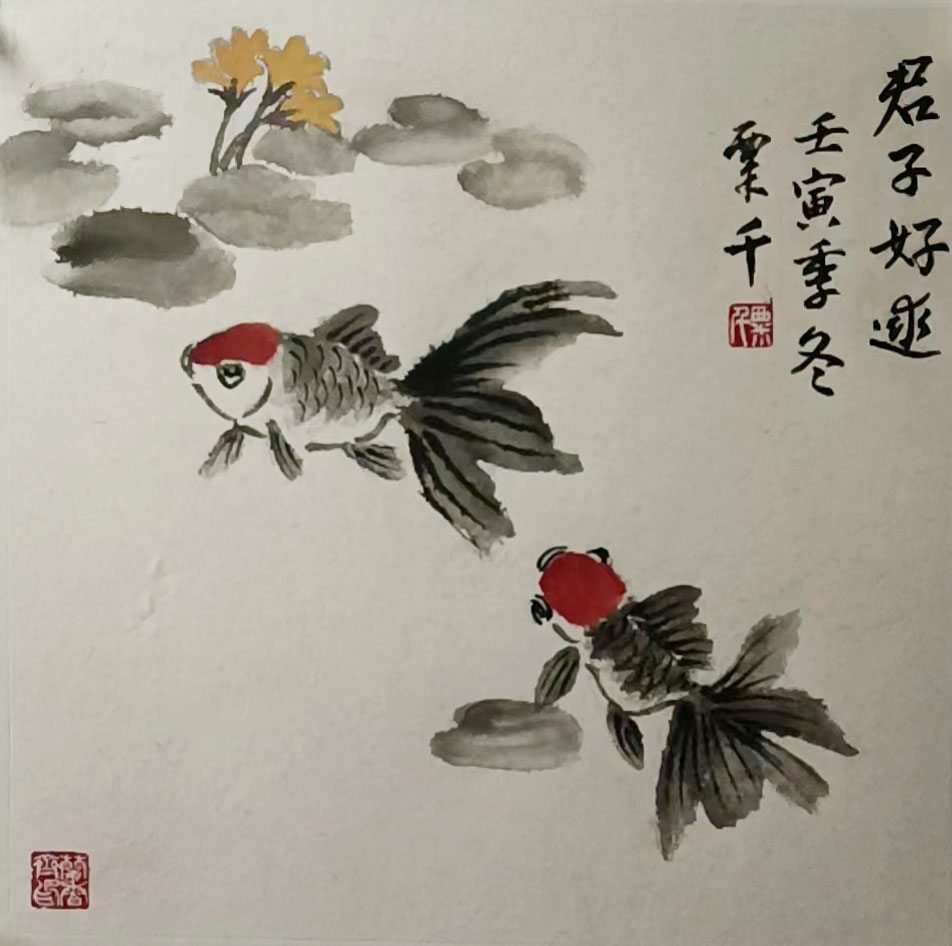 君子好逑
壬寅季冬
粟千